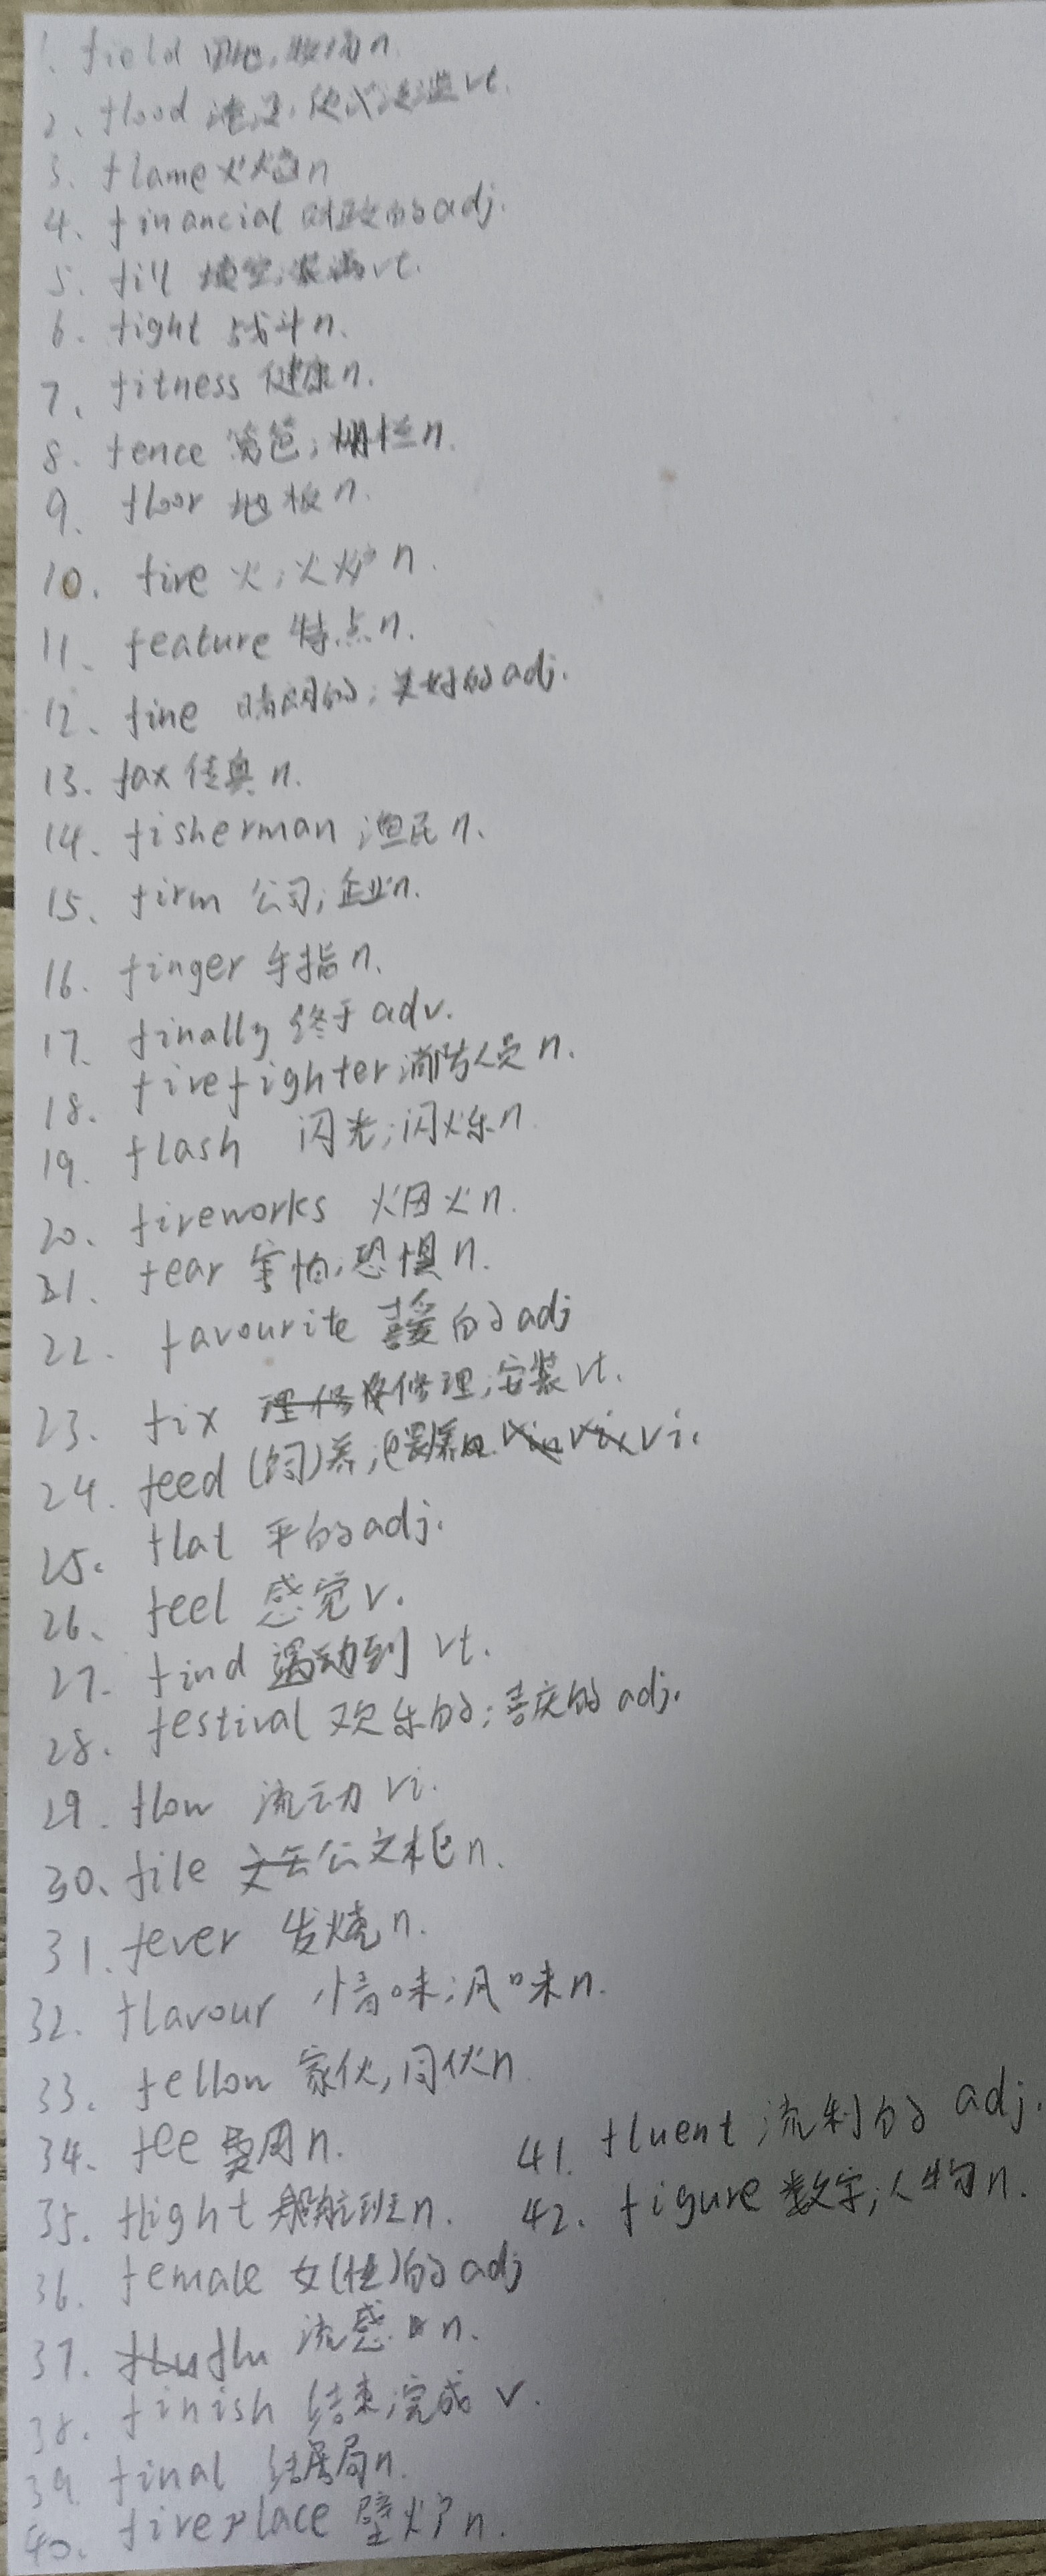 1. field 田地,牧场n.
2、flood 淹没,使泛滥vt.
3. flame 火焰n
4、financial 财政的adj.
5. fill 填空;装满vt.
6. fight 战斗n.
7、fitness 健康n.
8. fence 篱笆;栅栏n.
9、floor 地板n.
10. fire 火;火炉n.
11、feature 特点n.
12、fine 晴朗的;美好的adj.
13. fax 传真n.
14、fisherman 渔民n.
15、firm 公司;企业n.
16. finger 手指n.
17. finally 终于adv.
18. firefighter 消防人员n.
19. flash 闪光;闪烁n.
20、fireworks 烟火n.
21. fear 害怕,恐惧n.
22. favourite 喜爱的adj
23. fix 修理;安装vt.
24. feed (饲)养; vi.
25. flat 平的adj.
26、feel 感觉v.
27. find 遇到 vt.
28. festival 欢乐的;喜庆的adj.
29. flow 流动vi.
30、file 公文柜n.
31. fever 发烧n.
32. flavour 情味;风味n.
33. fellow 家伙,同伙n
34、fee 费用n.
35. flight 航班n.
36. female 女(性)的adj
37. flu 流感n.
38. finish 结束;完成v.
39. final 结局n.
40. fireplace 壁炉n.
41. fluent 流利的adj.
42. figure 数字;人物n.